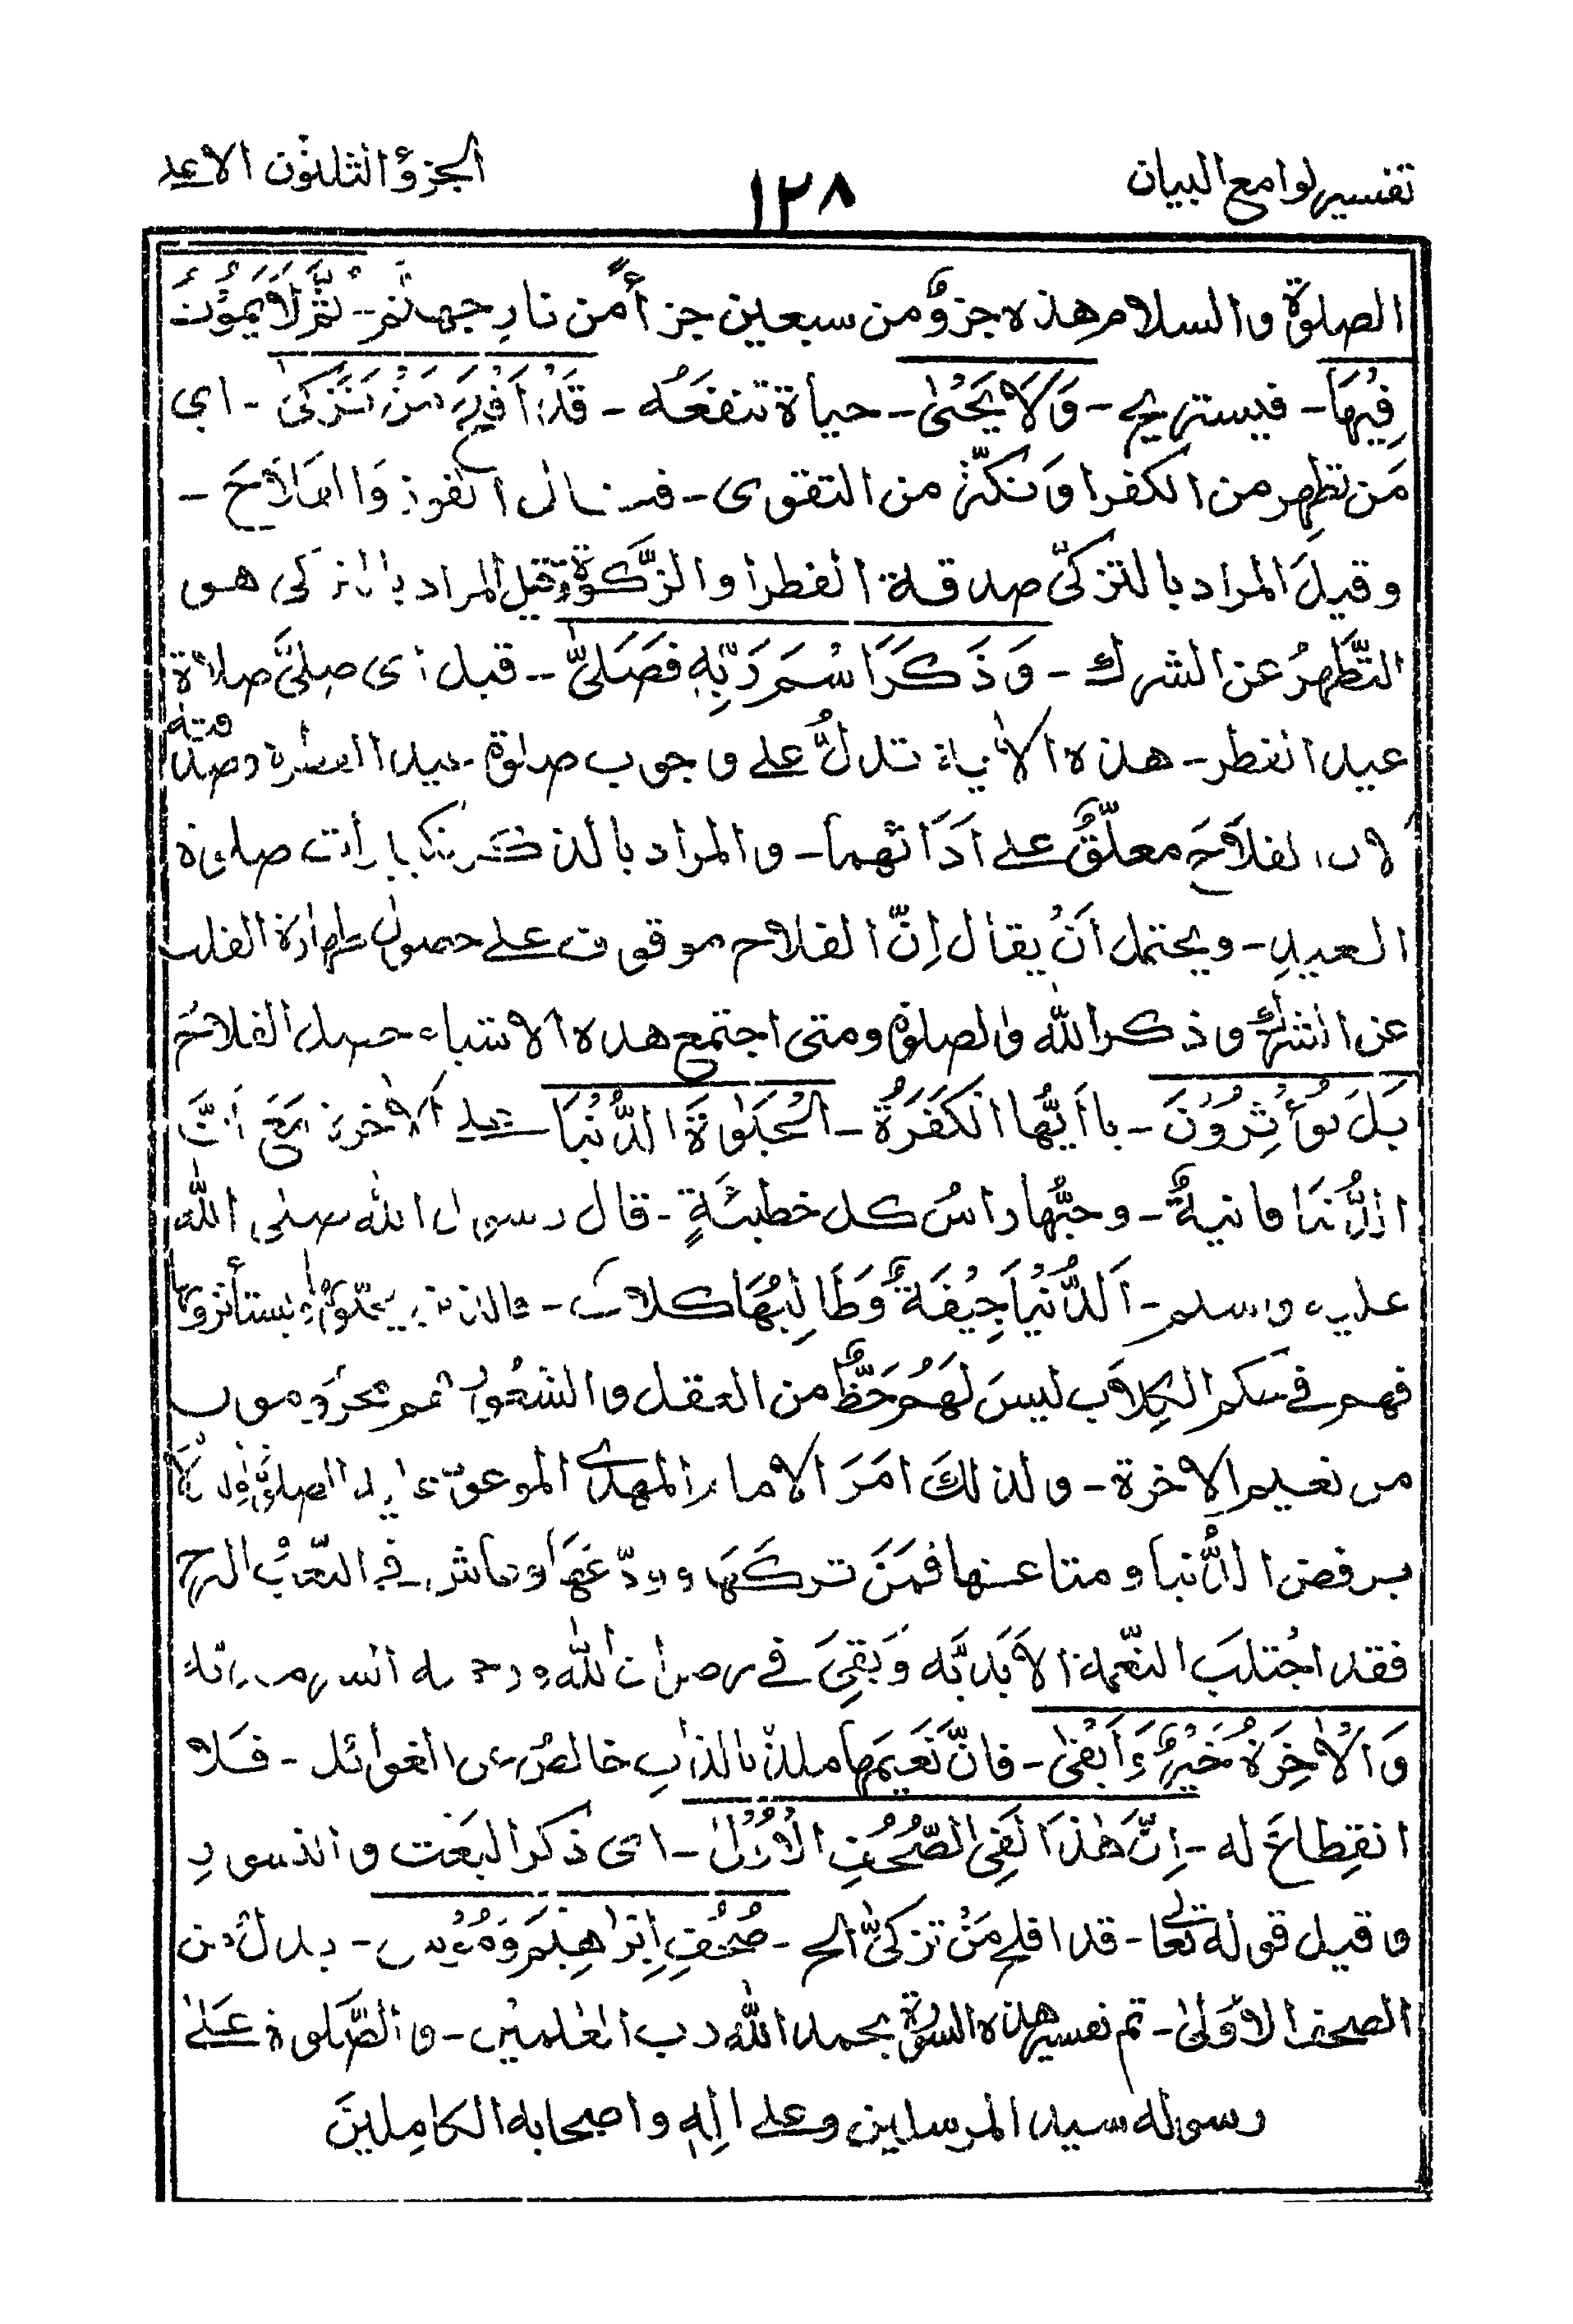 تفسير لوامع البيان
١٢٨
الجزؤ الثلثون الاعلى
الصلوة والسلام هذه جزؤٌ من سبعين جزأً من نارِ جهنم - ثُمَّ لَا يَمُوْتُ
فِيْهَا - فيستريح - وَلَا يَحْيٰى - حياة تنفعُه - قَدْ اَفْلَحَ مَنْ تَزَكّٰى - اي
مَن تطهر من الكفر او تكثّر من التقوى - فينال الفوز وَالفَلَاحَ -
وقيل المراد بالتزكّي صدقة الفطر او الزَّكٰوة وقيل المراد بالتزكي هو
التَّطَهرُ عن الشرك - وَذَكَرَ اسْمَ رَبِّهٖ فَصَلّٰى - قيل اى صلىَّ صلاة
عيد الفطر - هذه الاٰية تدلُّ على وجوب صلوة عيد الفطر وصدقته
لان الفلاَحَ معلّقٌ على اَدَائهما - والمراد بالذكر تكبيرات صلوة
العيدِ - ويحتمل اَنْ يقال اِنّ الفلاح موقوف على حصول طهارة القلب
عن الشرك وذكر الله والصلوة ومتى اجتمع هذه الاشياء حصل الفلاحُ
بَلْ تُؤْثِرُوْنَ - يا اَيُّها الكَفَرَةُ - الْحَيٰوةَ الدُّنْيَا على الاٰخرة مَعَ اَنَّ
الدُّنيَا فانيةٌ - وحبُّها راسُ كل خطيئَةٍ - قال رسول الله صلى الله
عليه وسلم - اَلدُّنْيَا جِيْفَةٌ وَطَالِبُهَا كلاب - فالذين يحبّون ويستأثرونها
فهم في حكم الكِلاَب ليسَ لهُم حَظٌّ من العقل والشعُور ثم محرومون
من نعيم الاٰخرة - ولذلكَ امَرَ الامام المهدى الموعود عليه الصلوة والسلام
برفض الدُّنيا ومتاعها فمَنْ تركَهَا وودّعَهَا وعاش في
فقد اجْتلبَ النّعمة الاَبديَّه وَبَقِيَ في رضوان الله ورحمته السرمديّة
وَالْاٰخِرَةُ خَيْرٌ وَّاَبْقٰى - فانَّ نَعيمَها ملذ بالذاتِ خالصٌ عن الغوائل - فلا
انقِطاعَ له - اِنَّ هٰذَا لَفِى الصُّحُفِ الْاُوْلٰى - اى ذكر البَعْث والنشورِ
وقيل قوله تعالى - قد افلح مَنْ تزكىّٰ الخ - صُحُفِ اِبْرَاهِيْمَ وَمُوْسٰى - بدل من
الصحف الاُوْلىٰ - تم تفسير هذه السورة بحمد الله رب العٰلمين - والصَّلوة عَلىٰ
رسوله سيد المرسلين وعلى اٰلِهٖ واصحابه الكامِلينَ